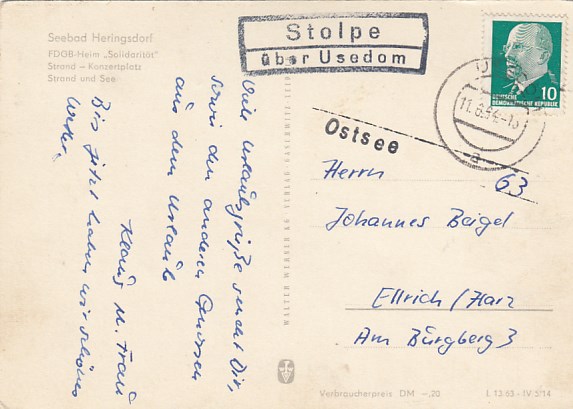 Seebad Heringsdorf
FDGB-Heim „Solidarität"
Strand – Konzertplatz
Strand und See
Stolpe
über Usedom
10
DEUTSCHE
DEMOKRATISCHE REPUBLIK
Ostsee
a
Viele Urlaubsgrüße sendet Dir,
sowie den anderen Genossen
aus dem Urlaub
Klaus u. Frau
Bis jetzt haben wir schönes
Wetter
Herrn
63
Johannes Beigel
Ellrich / Harz
Am Burgberg 3
WALTER WERNER KG VERLAG
Verbraucherpreis DM –,20
IV 5/14